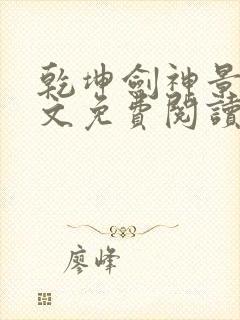 乾坤劍神景
文免費閱讀
廖峰